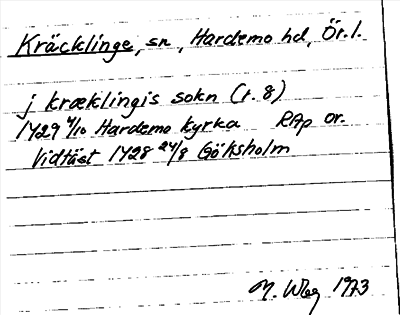 Kräcklinge, sn, Hardemo hd, Ör. l.
j kræklingis sokn (r. 8)
1429 4/10 Hardemo kyrka RAp or.
Vidtäst 1428 24/8 Göksholm
M. Wbg 1973